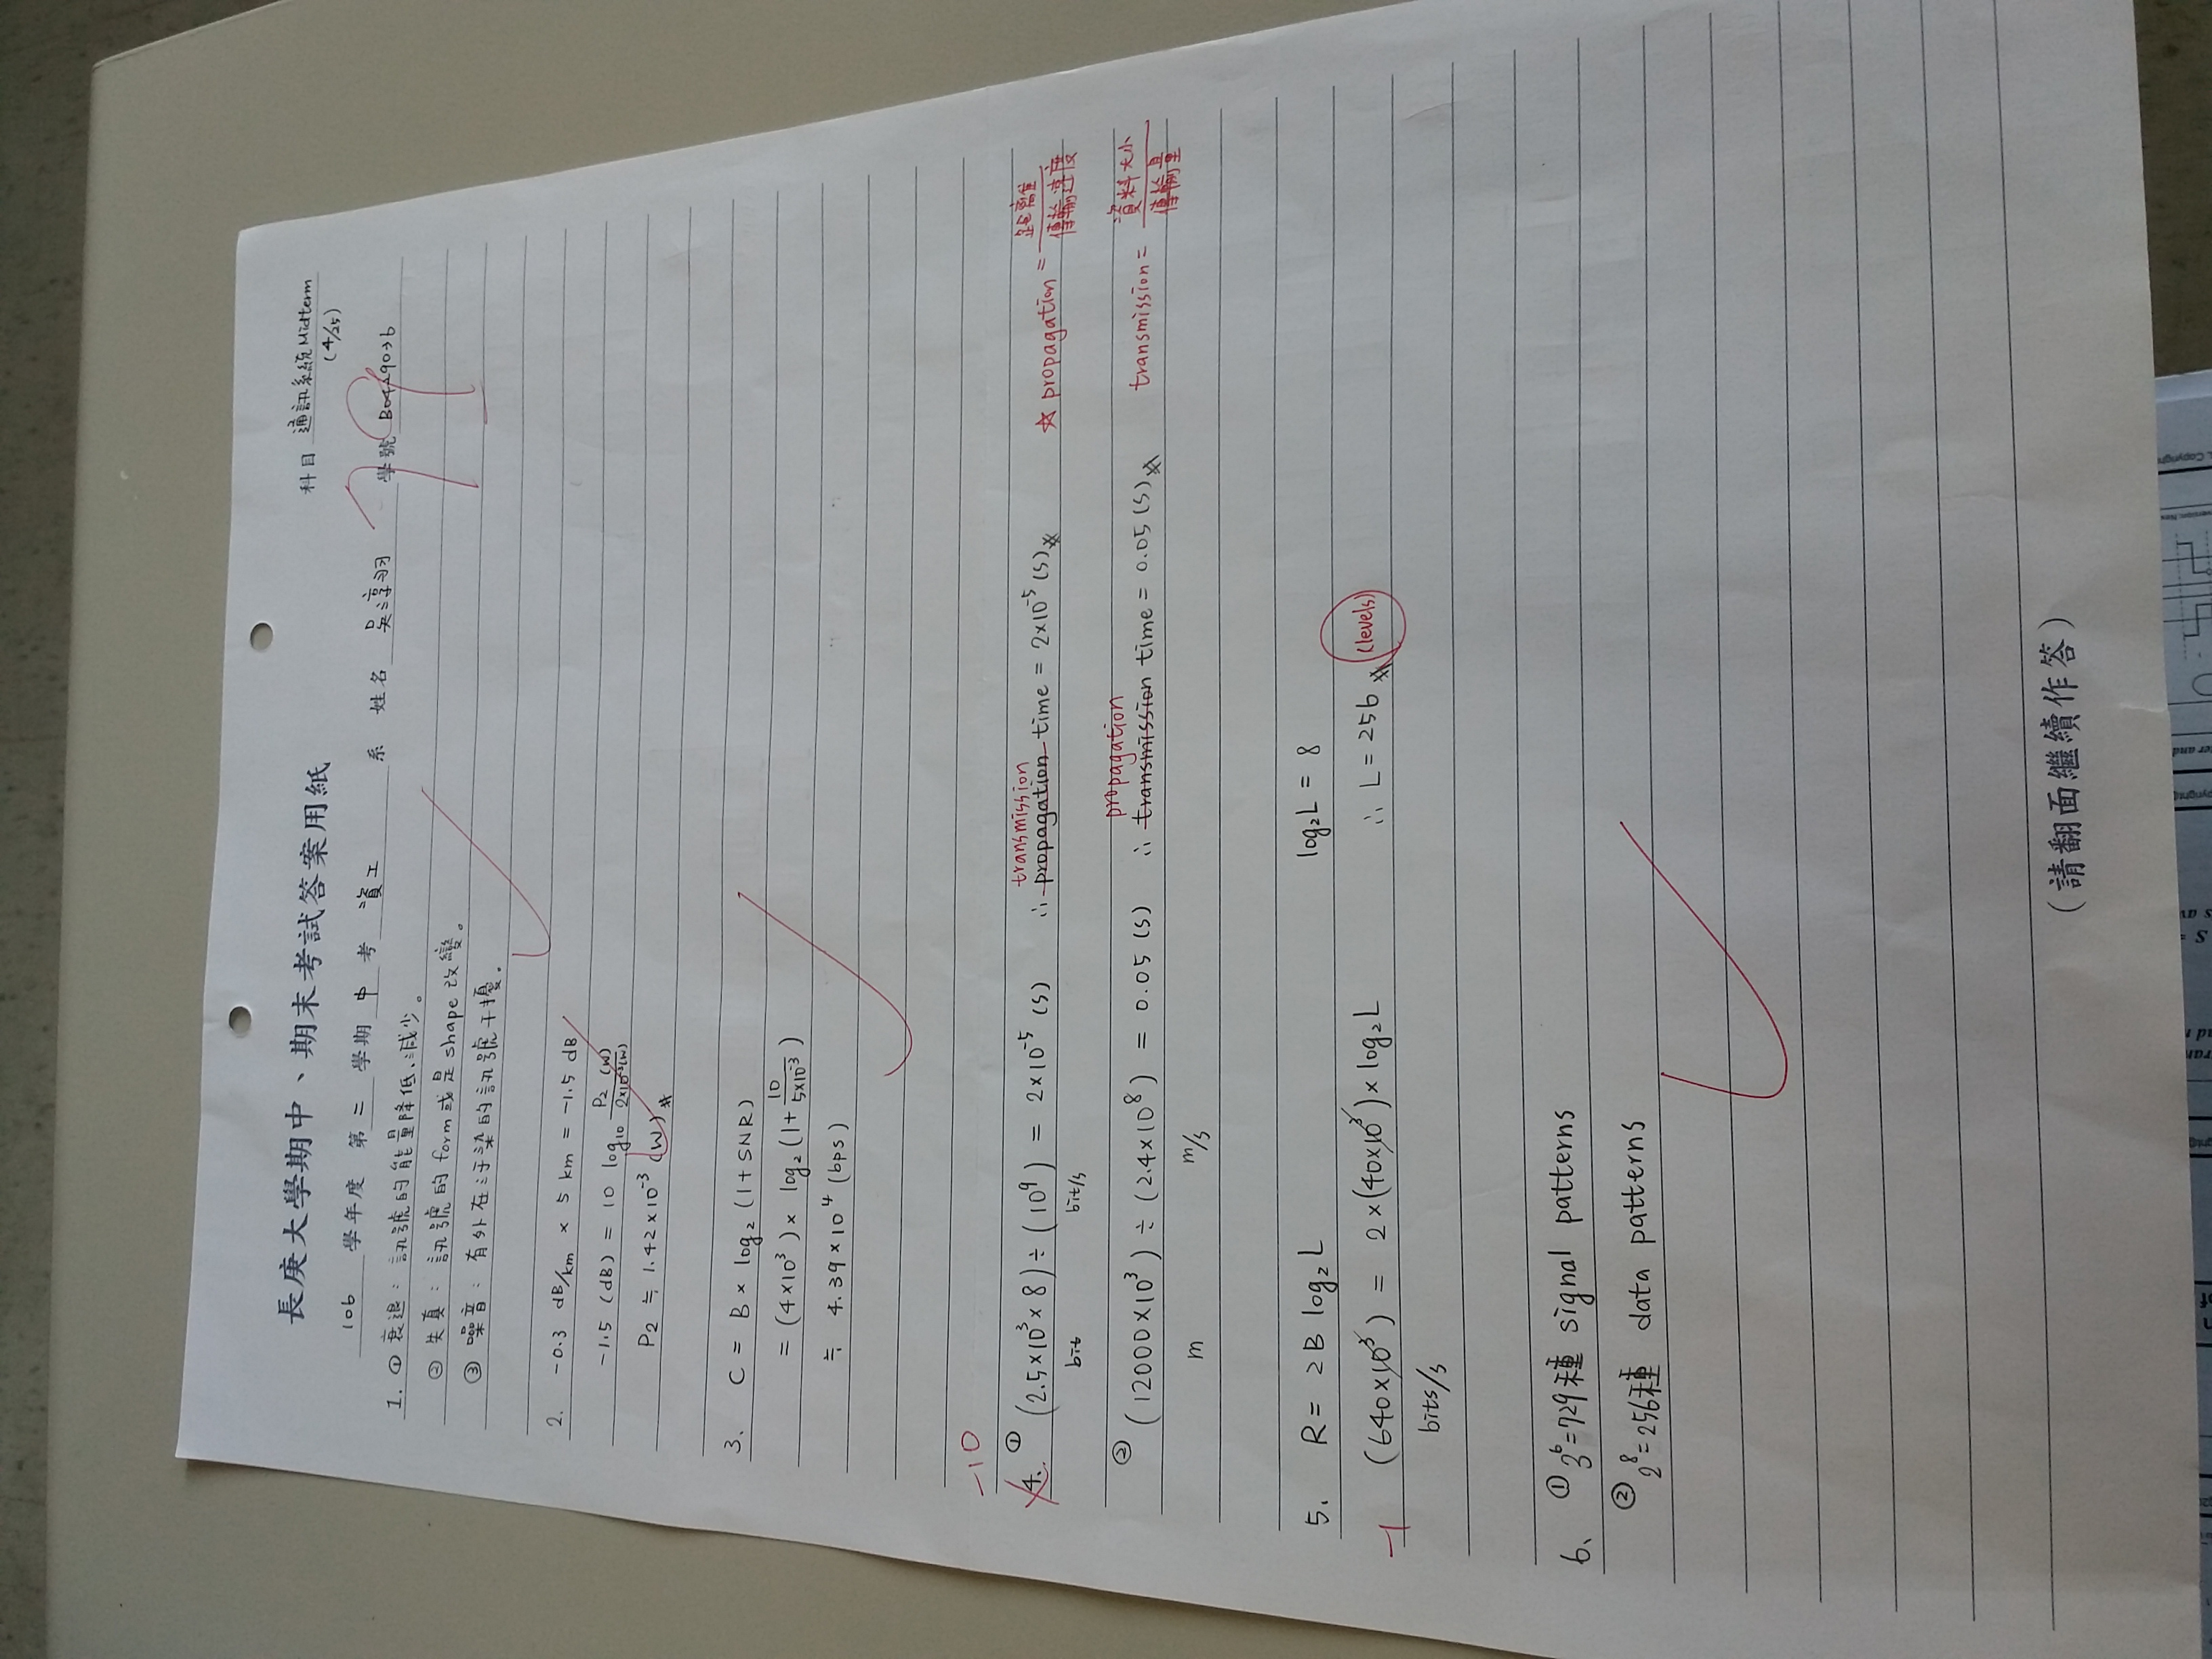 長庚大學期中、期末考試答案用紙
科目 通訊系統 Midterm
(4/25)
106 學年度 第 二 學期 中 考 資工 系 姓名 吳淳羽 學號
79
1. ① 衰退: 訊號的能量降低、減少。
② 失真: 訊號的 form 或是 shape 改變。
③ 噪音: 有外在汙染的訊號干擾。
2. -0.3 dB/km × 5 km = -1.5 dB
-1.5 (dB) = 10 log₁₀ P₂ (W) / 2×10⁻³(W)
P₂ ≒ 1.42×10⁻³ (W)
3. C = B × log₂ (1+SNR)
= (4×10³) × log₂ (1+ 10 / 5×10⁻³)
≒ 4.39×10⁴ (bps)
-10
transmission
4. ① (2.5×10³×8) ÷ (10⁹) = 2×10⁻⁵ (s) ∴ propagation time = 2×10⁻⁵ (s) ☆ propagation = 距離 / 傳輸速度
bit bit/s
propagation
② (12000×10³) ÷ (2.4×10⁸) = 0.05 (s) ∴ transmission time = 0.05 (s) transmission = 資料大小 / 傳輸量
m m/s
5. R = 2B log₂L log₂L = 8
-1 (640×10³) = 2×(40×10³)×log₂L ∴ L = 256 (levels)
bits/s
6. ① 3⁶=729種 signal patterns
② 2⁸=256種 data patterns
(請翻面繼續作答)